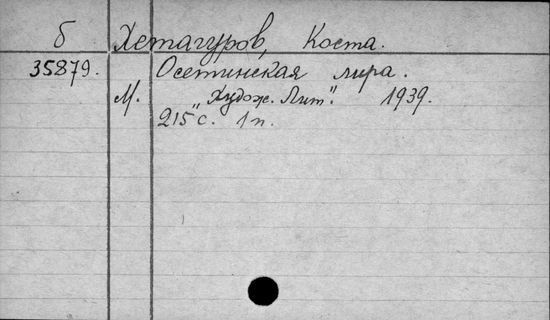 б Хетагуров, Коста.
35879. Осетинская лира.
М. "Худож. Лит". 1939.
215 с. 1 п.